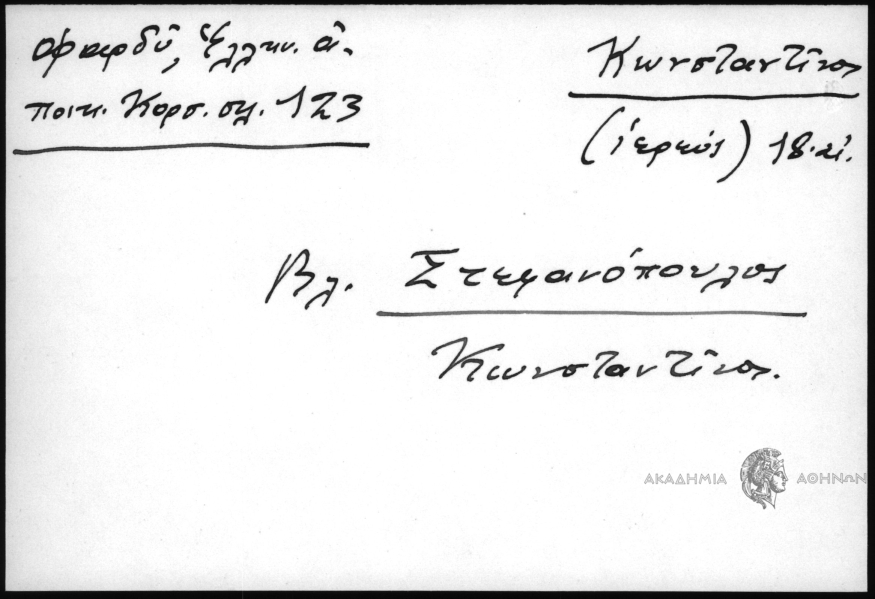 Φαρδύ, Ἑλλην. ἀ-
ποικ. Κορσ. σελ. 123
Κωνσταντῖνος
(ἱερεύς) 18. αἰ.
Βλ. Στεφανόπουλος
Κωνσταντῖνος.
ΑΚΑΔΗΜΙΑ ΑΘΗΝΩΝ